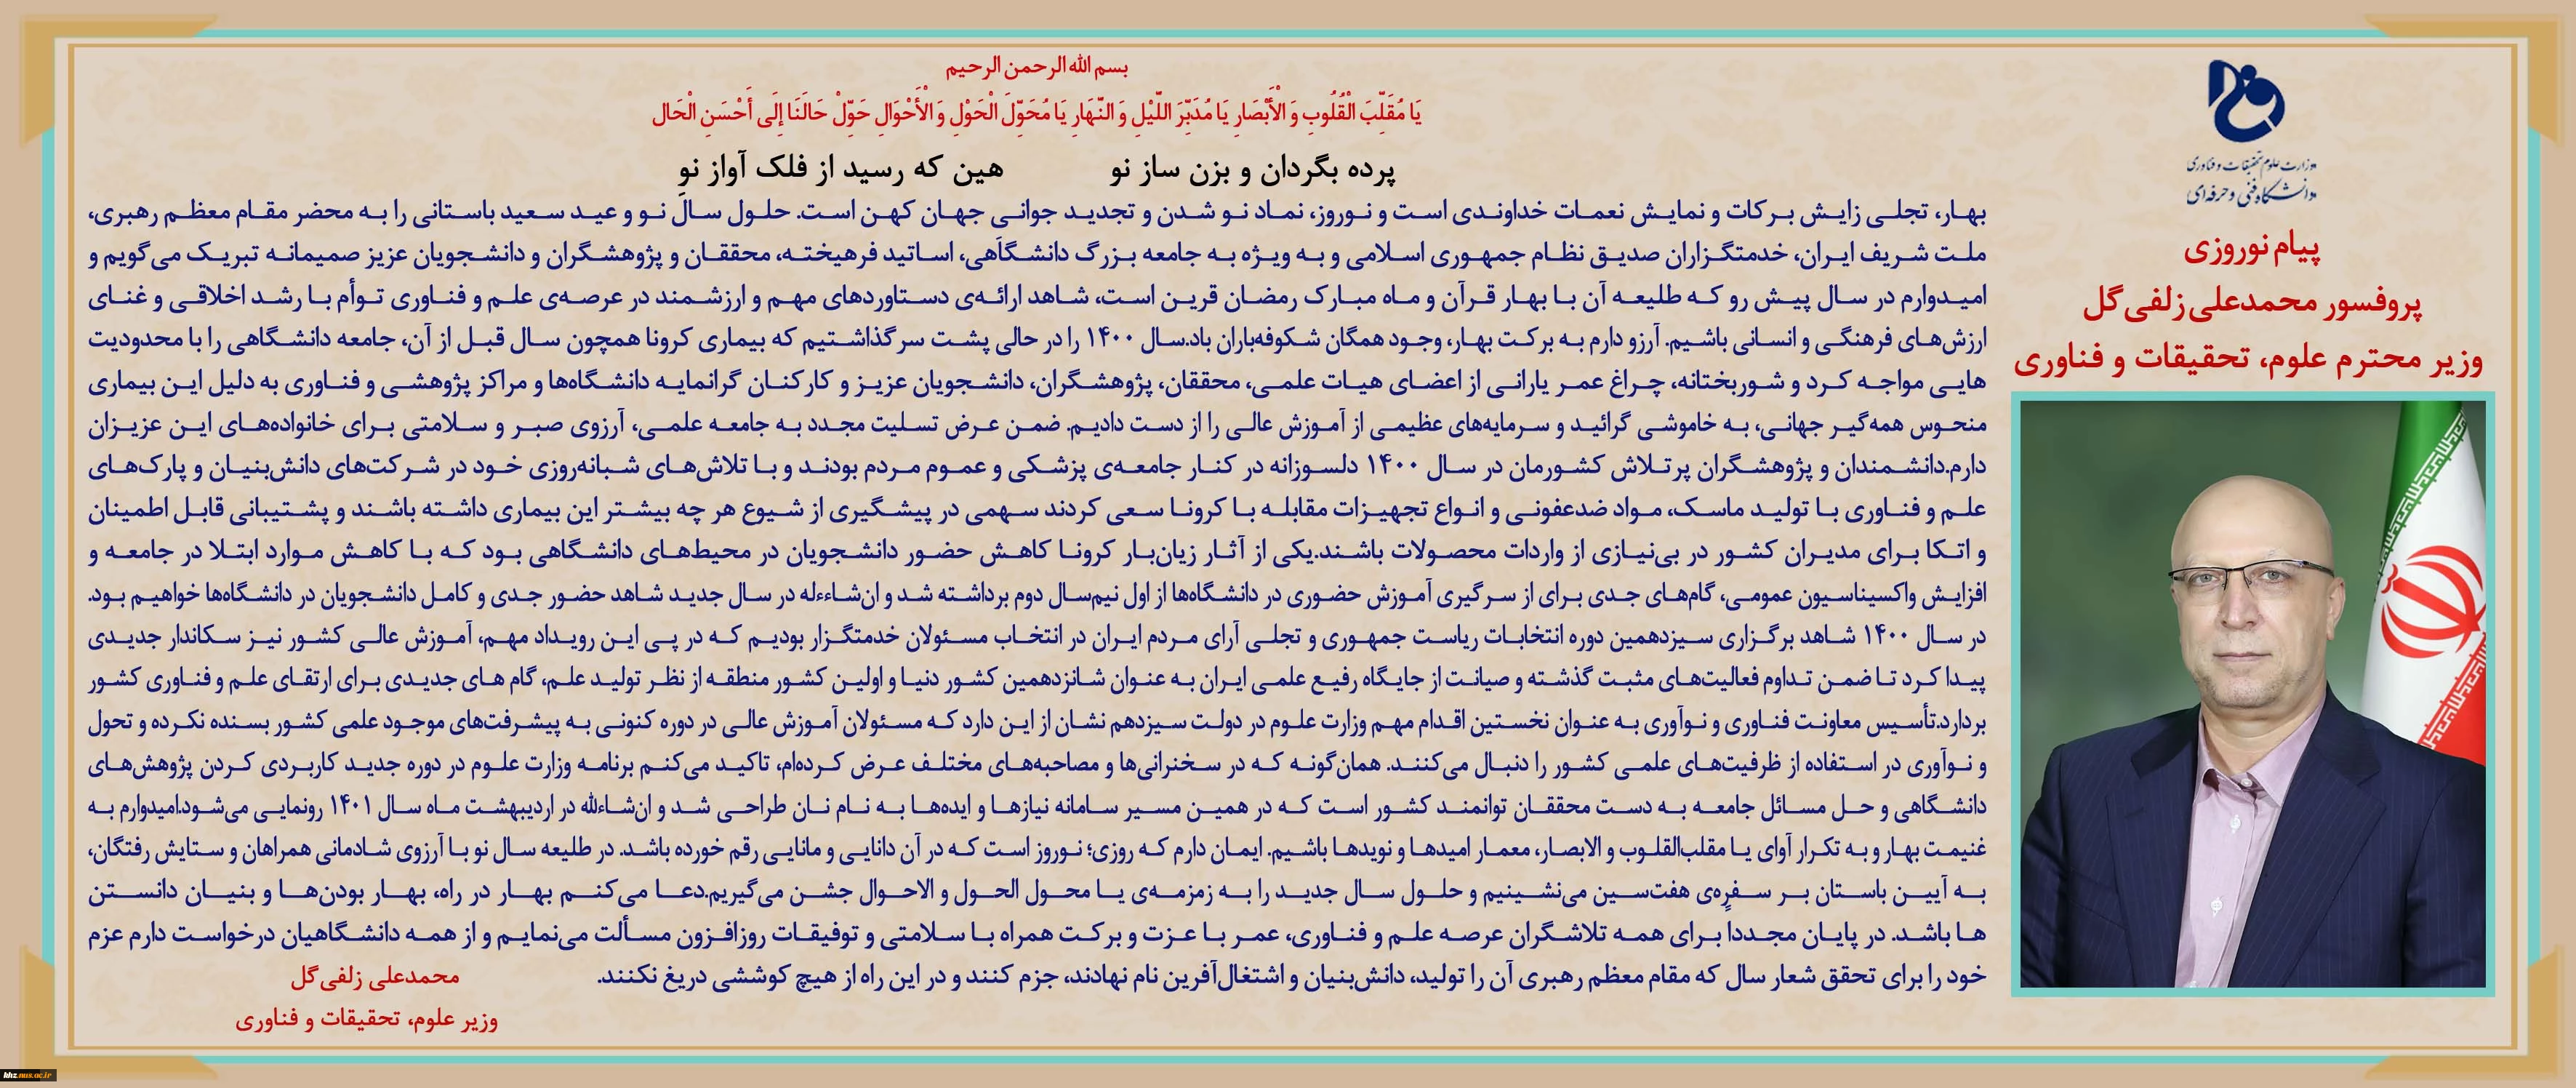 بسم الله الرحمن الرحیم
یَا مُقَلِّبَ الْقُلُوبِ وَ الْأَبْصَارِ یَا مُدَبِّرَ اللَّیْلِ وَ النَّهَارِ یَا مُحَوِّلَ الْحَوْلِ وَ الْأَحْوَالِ حَوِّلْ حَالَنَا إِلَی أَحْسَنِ الْحَالِ
پرده بگردان و بزن ساز نو هین که رسید از فلک آواز نو
وزارت علوم تحقیقات و فناوری
دانشگاه فنی و حرفه‌ای
پیام نوروزی
پروفسور محمدعلی زلفی‌گل
وزیر محترم علوم، تحقیقات و فناوری
بهار، تجلی زایش برکات و نمایش نعمات خداوندی است و نوروز، نماد نو شدن و تجدید جوانی جهان کهن است. حلول سال نو و عید سعید باستانی را به محضر مقام معظم رهبری،
ملت شریف ایران، خدمتگزاران صدیق نظام جمهوری اسلامی و به ویژه به جامعه بزرگ دانشگاهی، اساتید فرهیخته، محققان و پژوهشگران و دانشجویان عزیز صمیمانه تبریک می‌گویم و
امیدوارم در سال پیش رو که طلیعه آن با بهار قرآن و ماه مبارک رمضان قرین است، شاهد ارائه‌ی دستاوردهای مهم و ارزشمند در عرصه‌ی علم و فناوری توأم با رشد اخلاقی و غنای
ارزش‌های فرهنگی و انسانی باشیم. آرزو دارم به برکت بهار، وجود همگان شکوفه‌باران باد.سال ۱۴۰۰ را در حالی پشت سر گذاشتیم که بیماری کرونا همچون سال قبل از آن، جامعه دانشگاهی را با محدودیت
هایی مواجه کرد و شوربختانه، چراغ عمر یارانی از اعضای هیات علمی، محققان، پژوهشگران، دانشجویان عزیز و کارکنان گرانمایه دانشگاه‌ها و مراکز پژوهشی و فناوری به دلیل این بیماری
منحوس همه‌گیر جهانی، به خاموشی گرائید و سرمایه‌های عظیمی از آموزش عالی را از دست دادیم. ضمن عرض تسلیت مجدد به جامعه علمی، آرزوی صبر و سلامتی برای خانواده‌های این عزیزان
دارم.دانشمندان و پژوهشگران پرتلاش کشورمان در سال ۱۴۰۰ دلسوزانه در کنار جامعه‌ی پزشکی و عموم مردم بودند و با تلاش‌های شبانه‌روزی خود در شرکت‌های دانش‌بنیان و پارک‌های
علم و فناوری با تولید ماسک، مواد ضدعفونی و انواع تجهیزات مقابله با کرونا سعی کردند سهمی در پیشگیری از شیوع هر چه بیشتر این بیماری داشته باشند و پشتیبانی قابل اطمینان
و اتکا برای مدیران کشور در بی‌نیازی از واردات محصولات باشند.یکی از آثار زیان‌بار کرونا کاهش حضور دانشجویان در محیط‌های دانشگاهی بود که با کاهش موارد ابتلا در جامعه و
افزایش واکسیناسیون عمومی، گام‌های جدی برای از سرگیری آموزش حضوری در دانشگاه‌ها از اول نیم‌سال دوم برداشته شد و ان‌شاءاله در سال جدید شاهد حضور جدی و کامل دانشجویان در دانشگاه‌ها خواهیم بود.
در سال ۱۴۰۰ شاهد برگزاری سیزدهمین دوره انتخابات ریاست جمهوری و تجلی آرای مردم ایران در انتخاب مسئولان خدمتگزار بودیم که در پی این رویداد مهم، آموزش عالی کشور نیز سکاندار جدیدی
پیدا کرد تا ضمن تداوم فعالیت‌های مثبت گذشته و صیانت از جایگاه رفیع علمی ایران به عنوان شانزدهمین کشور دنیا و اولین کشور منطقه از نظر تولید علم، گام های جدیدی برای ارتقای علم و فناوری کشور
بردارد.تأسیس معاونت فناوری و نوآوری به عنوان نخستین اقدام مهم وزارت علوم در دولت سیزدهم نشان از این دارد که مسئولان آموزش عالی در دوره کنونی به پیشرفت‌های موجود علمی کشور بسنده نکرده و تحول
و نوآوری در استفاده از ظرفیت‌های علمی کشور را دنبال می‌کنند. همان‌گونه که در سخنرانی‌ها و مصاحبه‌های مختلف عرض کرده‌ام، تاکید می‌کنم برنامه وزارت علوم در دوره جدید کاربردی کردن پژوهش‌های
دانشگاهی و حل مسائل جامعه به دست محققان توانمند کشور است که در همین مسیر سامانه نیازها و ایده‌ها به نام نان طراحی شد و ان‌شاءالله در اردیبهشت ماه سال ۱۴۰۱ رونمایی می‌شود.امیدوارم به
غنیمت بهار و به تکرار آوای یا مقلب‌القلوب و الابصار، معمار امیدها و نویدها باشیم. ایمان دارم که روزی؛ نوروز است که در آن دانایی و مانایی رقم خورده باشد. در طلیعه سال نو با آرزوی شادمانی همراهان و ستایش رفتگان،
به آیین باستان بر سفره‌ی هفت‌سین می‌نشینیم و حلول سال جدید را به زمزمه‌ی یا محول الحول و الاحوال جشن می‌گیریم.دعا می‌کنم بهار در راه، بهار بودن‌ها و بنیان دانستن
ها باشد. در پایان مجدداً برای همه تلاشگران عرصه علم و فناوری، عمر با عزت و برکت همراه با سلامتی و توفیقات روزافزون مسألت می‌نمایم و از همه دانشگاهیان درخواست دارم عزم
خود را برای تحقق شعار سال که مقام معظم رهبری آن را تولید، دانش‌بنیان و اشتغال‌آفرین نام نهادند، جزم کنند و در این راه از هیچ کوششی دریغ نکنند.
محمدعلی زلفی‌گل
وزیر علوم، تحقیقات و فناوری
khz.nus.ac.ir